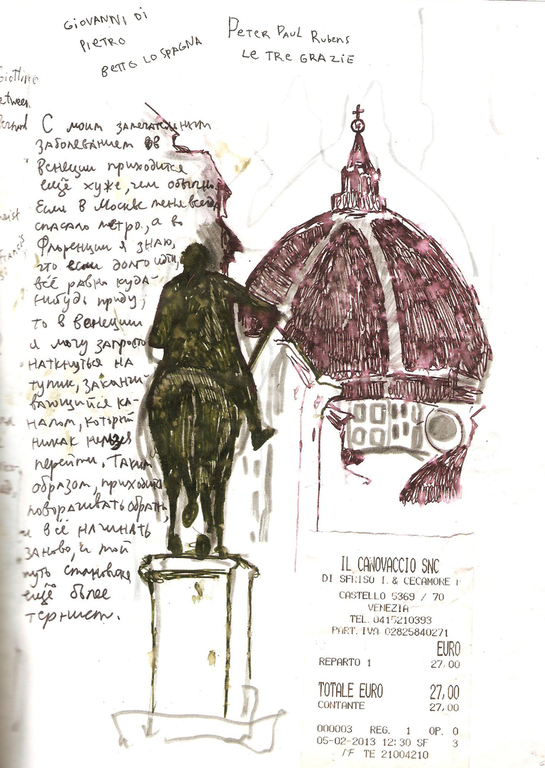 GIOVANNI DI
PIETRO
BETTO LO SPAGNA
PETER PAUL RUBENS
LE TRE GRAZIE
С моим
заболеванием в
Венеции приходится
ещё хуже, чем обычно.
Если в Москве меня всегда
спасало метро, а во
Флоренции я знаю,
что если долго идти,
всё равно куда-
нибудь приду,
то в Венеции
я могу запросто
наткнуться на
тупик, заканчи
вающийся ка-
налом, который
никак нельзя
перейти. Таким
образом, приходится
поворачивать обратно
и всё начинать
заново, и мой
путь становится
ещё более
тернист.
IL CANOVACCIO SNC
DI SFRISO I. & CECAMORE
CASTELLO 5369 / 70
VENEZIA
TEL. 0415210393
PART. IVA 02825840271
EURO
REPARTO 1 27,00
TOTALE EURO 27,00
CONTANTE 27,00
000003 REG. 1 OP. 0
05-02-2013 12:30 SF 3
TE 21004210